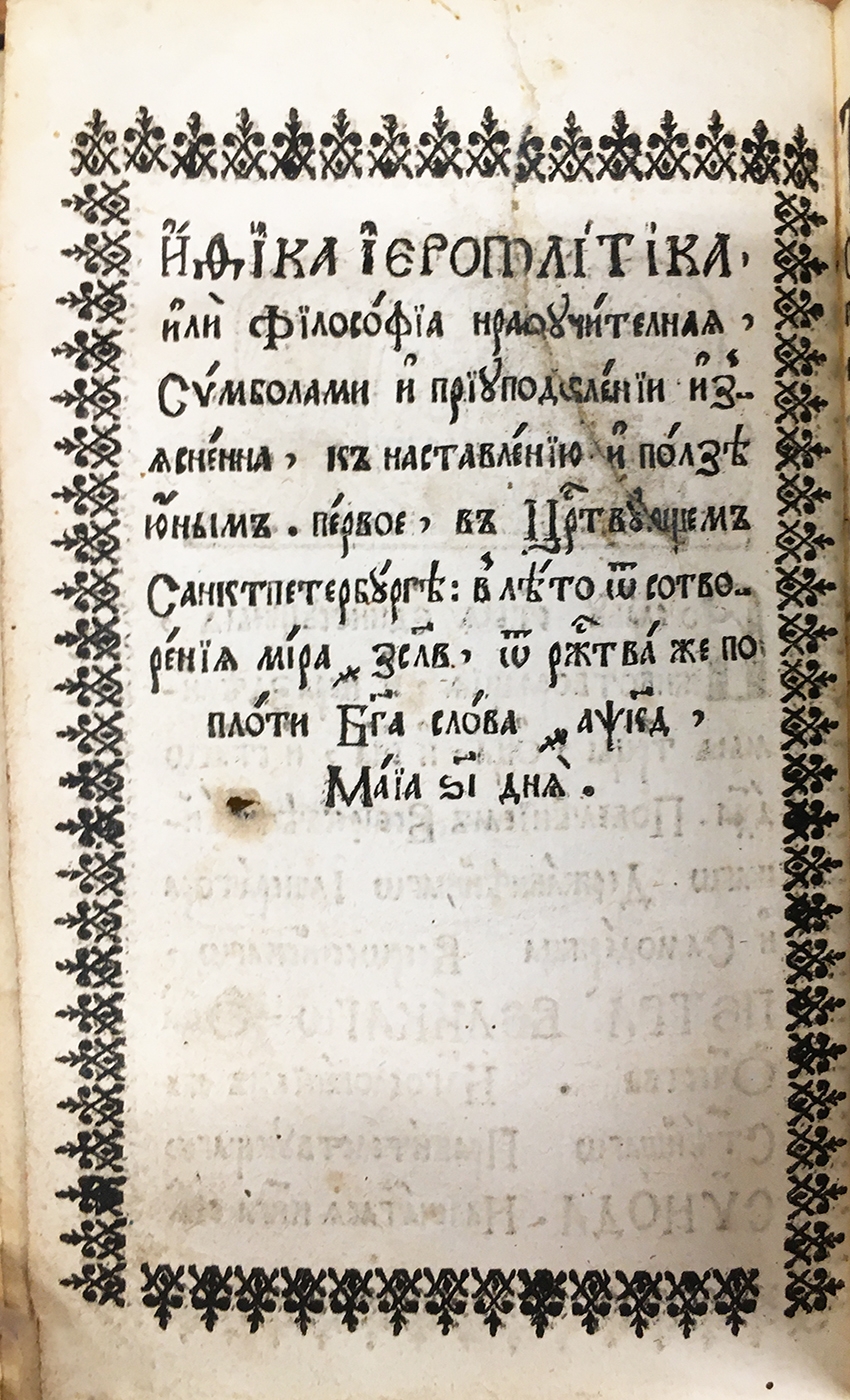 И҆Ѳі́ка І҆ЕРОПОЛІ́ТІКА,
и҆лѝ Фїлосо́фїа нраоꙋчи́телнаѧ ,
Сѵ́мболами и҆ прїꙋ́подоблє́нїи и҆з̾-
ѧсне́нна , къ наставле́нїю и҆ по́лзѣ
ю҆́нымъ . пе́рвое , въ Црⷭ҇твꙋ́ющемъ
Санктпетербꙋ́ргѣ : в̾ лѣ́то ѿ сотво-
ре́нїѧ мі́ра ҂зсл҃в , ѿ рж҃тва́ же по
пло́ти Бг҃а сло́ва ҂аѱк҃д ,
Ма́їа ѕ҃і днѧ̀ .